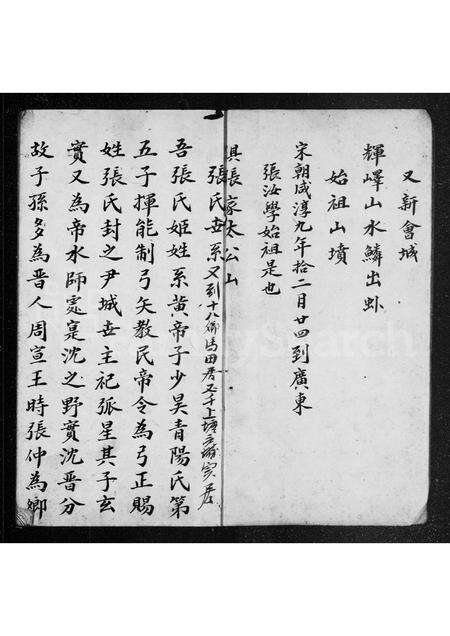 又新會城
輝嶧山水鱗出卦
始祖山墳
宋朝咸淳九年拾二月廿四到廣東
張汝學始祖是也
俱張家太公山
張氏世系又到十八鄉馬田
吾張氏姬姓系黃帝子少昊青陽氏第
五子揮能制弓矢教民帝令為弓正賜
姓張氏封之尹城世主祀弧星其子玄
實又為帝水師處寔沈之野實沈晉分
故子孫多為晋人周宣王時張仲為鄉